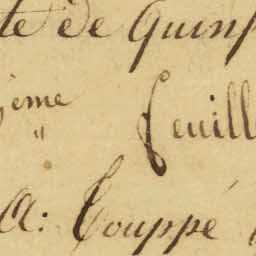 te de Quinf
ième feuill
"
A: Couppé